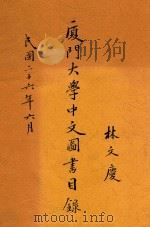 廈門大學中文圖書目錄
林文慶
民國二十六年六月
www.duxiu.com